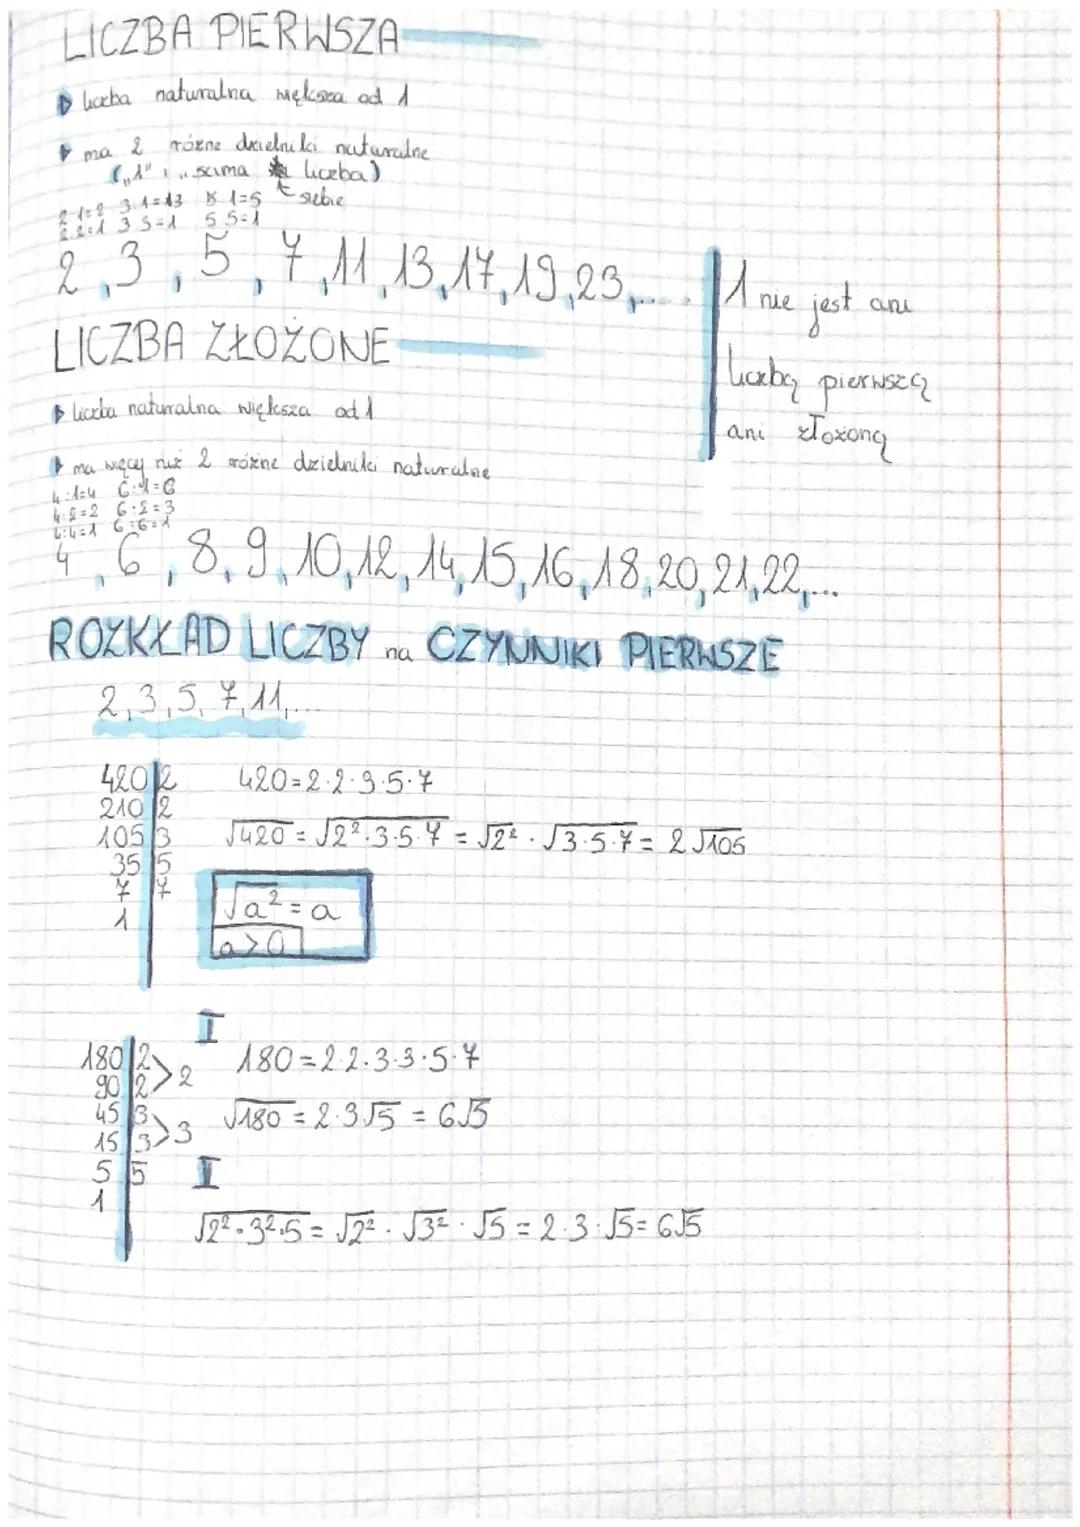 LICZBA PIERWSZA
liczba naturalna większa od 1
ma 2 różne dzielniki naturalne
(„1" i „sama liczba)
siebie
2:1=2 3:1=13 5:1=5
2:2=1 3:3=1 5:5=1
2, 3, 5, 7, 11, 13, 17, 19, 23, ....
1 nie jest ani
liczbą pierwszą
ani złożoną
LICZBA ZŁOŻONE
liczba naturalna większa od 1
ma więcej niż 2 różne dzielniki naturalne
4:1=4 6:1=6
4:2=2 6:2=3
4:4=1 6:6=1
4, 6, 8, 9, 10, 12, 14, 15, 16, 18, 20, 21, 22, ...
ROZKŁAD LICZBY na CZYNNIKI PIERWSZE
2, 3, 5, 7, 11, ...
420|2 420=2·2·3·5·7
210|2
105|3 √420 = √2²·3·5·7 = √2² · √3·5·7 = 2√105
35|5
7|7 √a² = a
1 a>0
I
180|2 >2 180=2·2·3·3·5·7
90|2
45|3 >3 √180 = 2·3√5 = 6√5
15|3
5|5 I
1
√2²·3²·5 = √2² · √3² · √5 = 2·3·√5 = 6√5